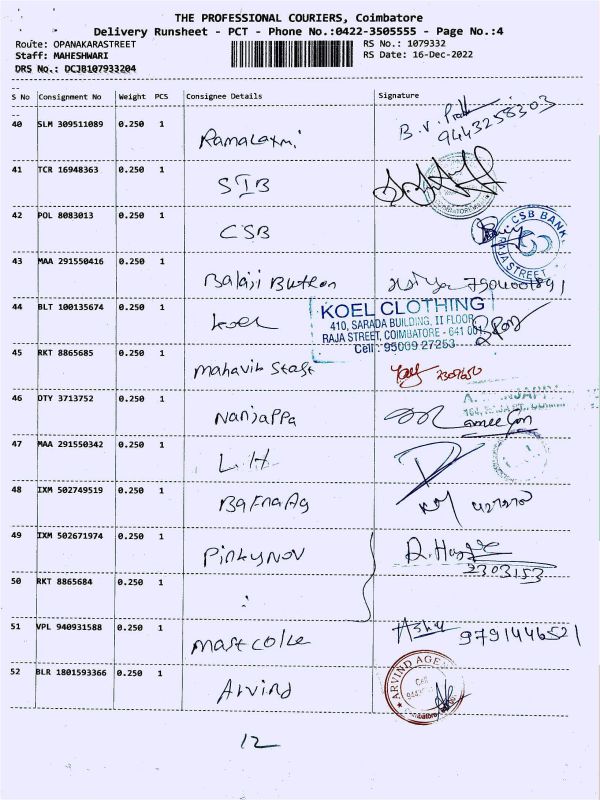 THE PROFESSIONAL COURIERS, Coimbatore
Delivery Runsheet - PCT - Phone No.:0422-3505555 - Page No.:4
Route: OPANAKARASTREET RS No.: 1079332
Staff: MAHESHWARI RS Date: 16-Dec-2022
DRS No.: DCJB107933204
S No Consignment No Weight PCS Consignee Details Signature
40 SLM 309511089 0.250 1 Ramalaxmi B.V. 9443258303
41 TCR 16948363 0.250 1 SIB
COIMBATORE
42 POL 8083013 0.250 1 CSB
CSB BANK
RAJA STREET
43 MAA 291550416 0.250 1 Balaji Button
44 BLT 100135674 0.250 1 Koel
KOEL CLOTHING
410, SARADA BUILDING, II FLOOR
RAJA STREET, COIMBATORE - 641 001
Cell : 95009 27253
45 RKT 8865685 0.250 1 Mahavir
46 DTY 3713752 0.250 1 Nanjappa
47 MAA 291550342 0.250 1 L.H
48 IXM 502749519 0.250 1
49 IXM 502671974 0.250 1 Pinkynov 2303153
50 RKT 8865684 0.250 1
51 VPL 940931588 0.250 1 9791446521
52 BLR 1801593366 0.250 1 Arvind
ARVIND AGEN
Cell
Coimbatore
12